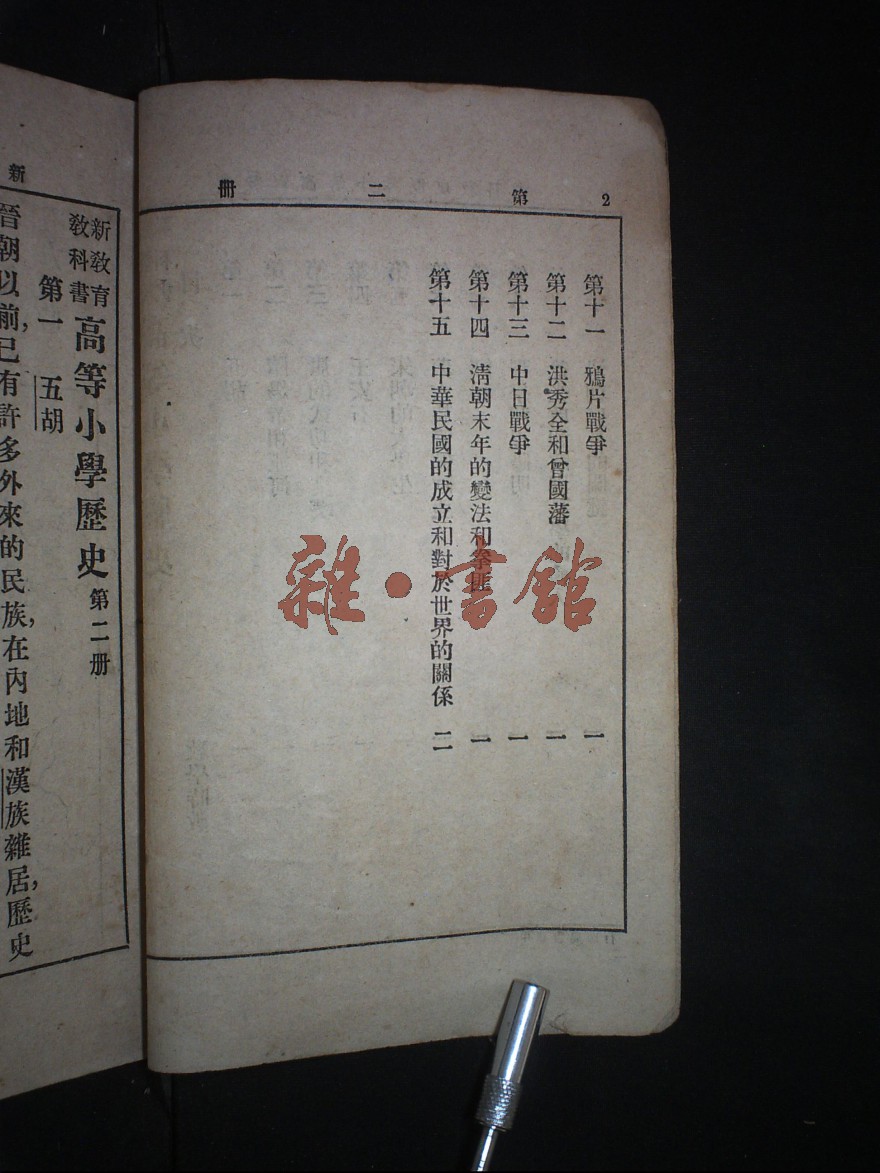 2 第二册
第十一 鴉片戰爭 一
第十二 洪秀全和曾國藩 一
第十三 中日戰爭 一
第十四 清朝末年的變法和拳匪 一
第十五 中華民國的成立和對於世界的關係 二
新
新教育教科書 高等小學歷史 第二册
第一 五胡
晉朝以前,已有許多外來的民族,在內地和漢族雜居,歷史
雜·書館